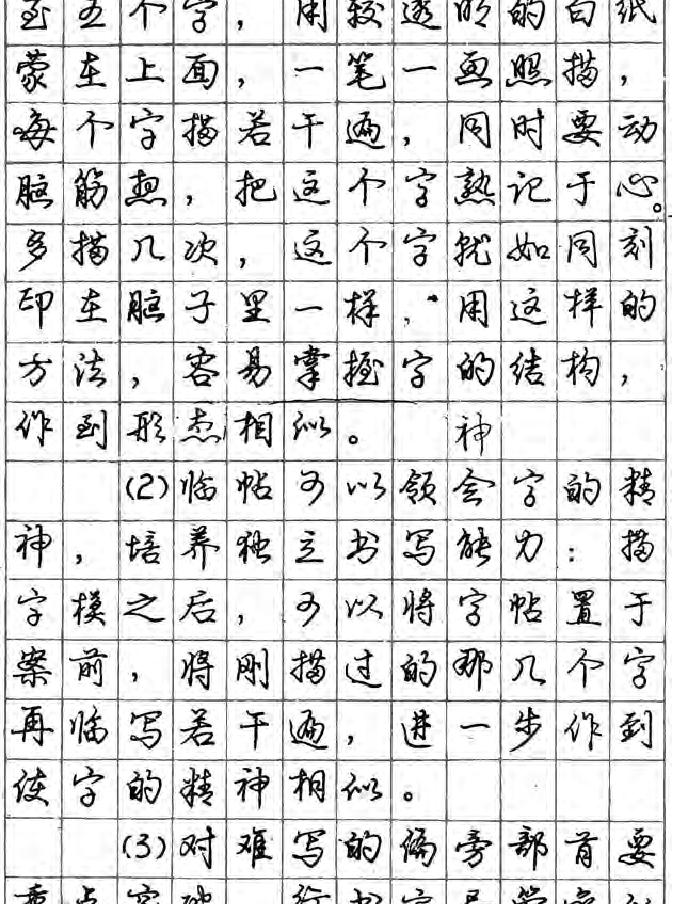 至五个字，用较透明的白纸
蒙在上面，一笔一画照描，
每个字描若干遍，同时要动
脑筋想，把这个字熟记于心。
多描几次，这个字就如同刻
印在脑子里一样，用这样的
方法，容易掌握字的结构，
作到形态相似。 神
(2)临帖可以领会字的精
神，培养独立书写能力：描
字模之后，可以将字帖置于
案前，将刚描过的那几个字
再临写若干遍，进一步作到
使字的精神相似。
(3)对难写的偏旁部首要